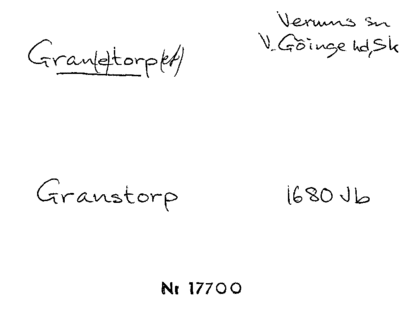 Gran(e)torp(et)
Verums sn
V. Göinge hd, Sk
Granstorp
1680 Jb
Nr 17700